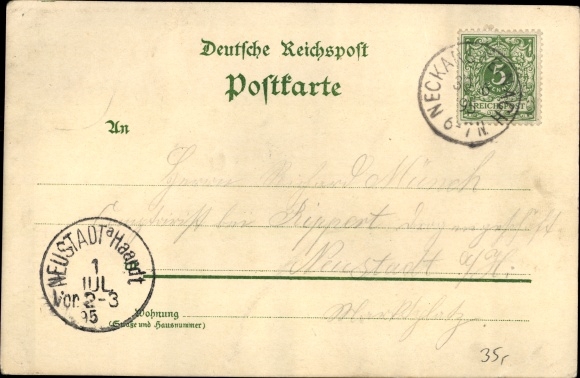 Deutsche Reichspost
Postkarte
An
NECKAR
5
REICHSPOST
Herrn Richard Münch
bei Rippert
Neustadt a/H.
Marktplatz
NEUSTADT a Haardt
1
JUL
Vor. 2-3
95
Wohnung
(Straße und Hausnummer)
35,